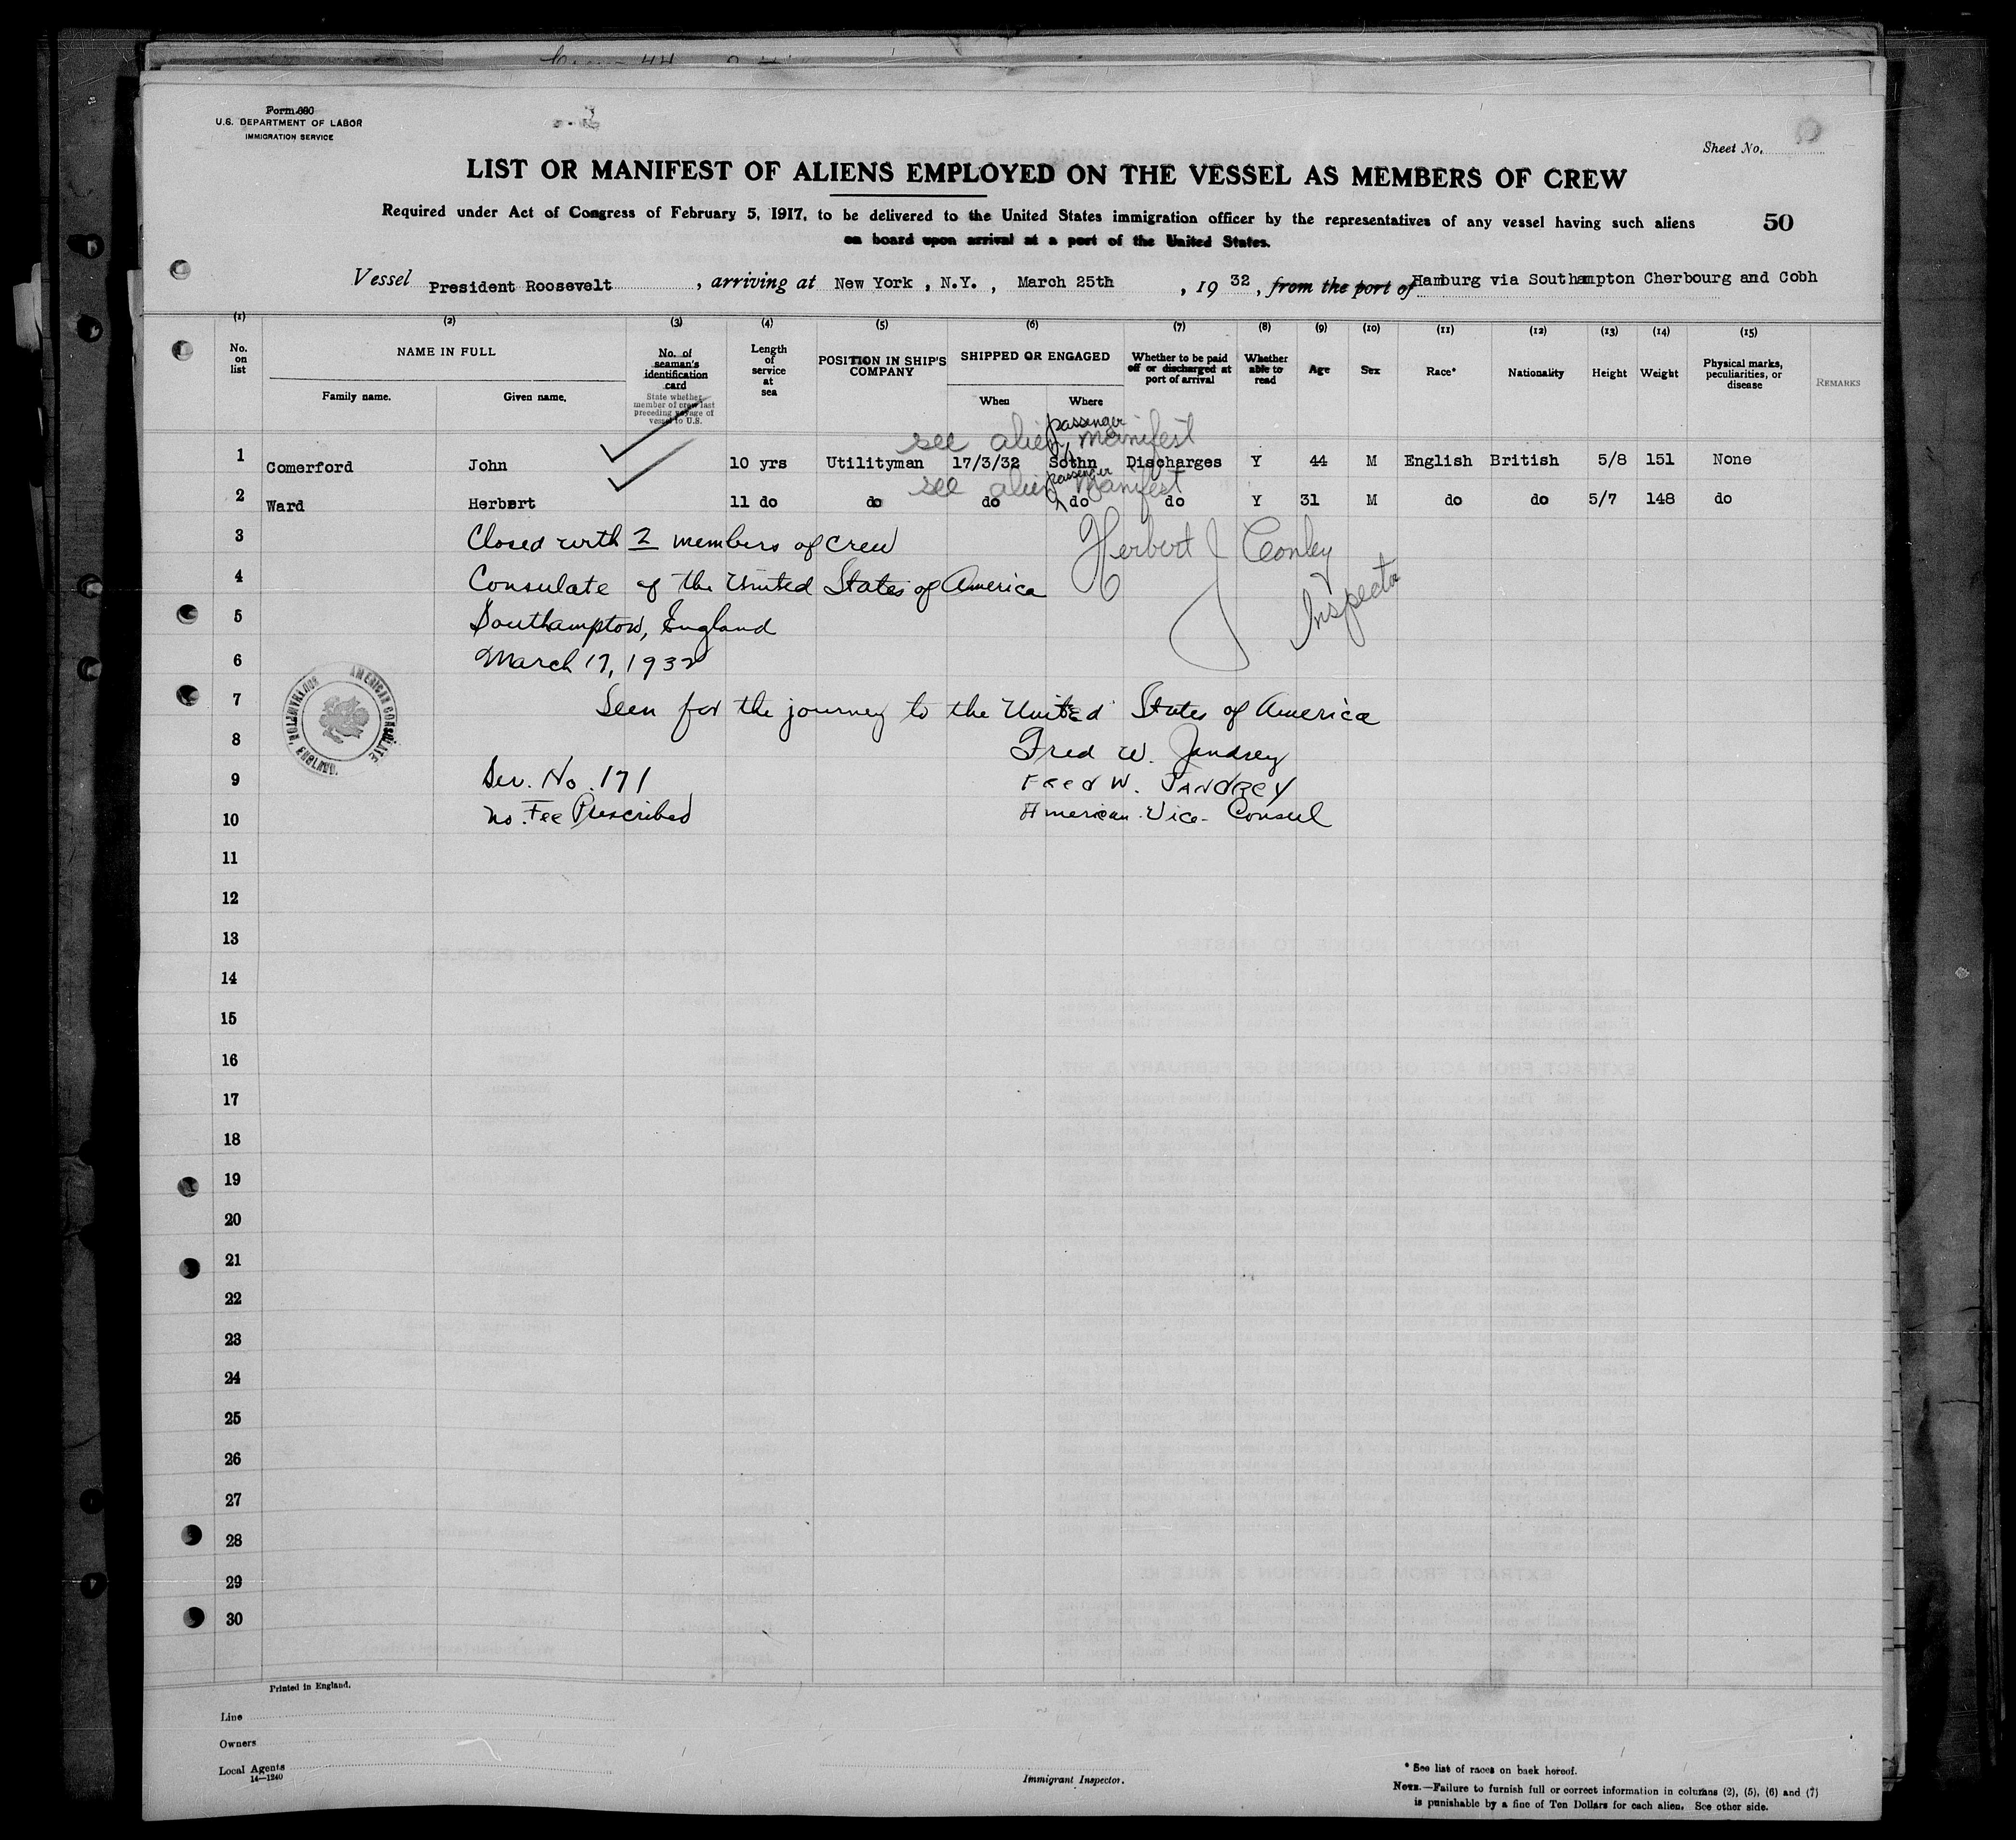 Form 680
U.S. DEPARTMENT OF LABOR
IMMIGRATION SERVICE
Sheet No.
LIST OR MANIFEST OF ALIENS EMPLOYED ON THE VESSEL AS MEMBERS OF CREW
Required under Act of Congress of February 5, 1917, to be delivered to the United States immigration officer by the representatives of any vessel having such aliens
on board upon arrival at a port of the United States.
50
Vessel President Roosevelt, arriving at New York, N.Y., March 25th, 1932, from the port of Hamburg via Southampton Cherbourg and Cobh
(1) (2) (3) (4) (5) (6) (7) (8) (9) (10) (11) (12) (13) (14) (15)
No. on list
NAME IN FULL
Family name. Given name.
No. of seaman's identification card
State whether member of crew last preceding voyage of vessel to U.S.
Length of service at sea
POSITION IN SHIP'S COMPANY
SHIPPED OR ENGAGED
When Where
Whether to be paid off or discharged at port of arrival
Whether able to read
Age
Sex
Race*
Nationality
Height
Weight
Physical marks, peculiarities, or disease
REMARKS
see alien passenger manifest
1 Comerford John 10 yrs Utilityman 17/3/32 Sothn Discharges Y 44 M English British 5/8 151 None
see alien passenger manifest
2 Ward Herbert 11 do do do do do Y 31 M do do 5/7 148 do
3 Closed with 2 members of crew Herbert J Conley
4 Consulate of the United States of America Inspector
5 Southampton, England
6 March 17, 1932
AMERICAN CONSULATE SOUTHAMPTON, ENGLAND.
7 Seen for the journey to the United States of America
8 Fred W. Jandrey
9 Ser. No. 171 FRED W. JANDREY
10 No Fee Prescribed American Vice-Consul
11
12
13
14
15
16
17
18
19
20
21
22
23
24
25
26
27
28
29
30
Printed in England.
Line
Owners
Local Agents
14—1240
Immigrant Inspector.
* See list of races on back hereof.
NOTE.—Failure to furnish full or correct information in columns (2), (5), (6) and (7)
is punishable by a fine of Ten Dollars for each alien. See other side.